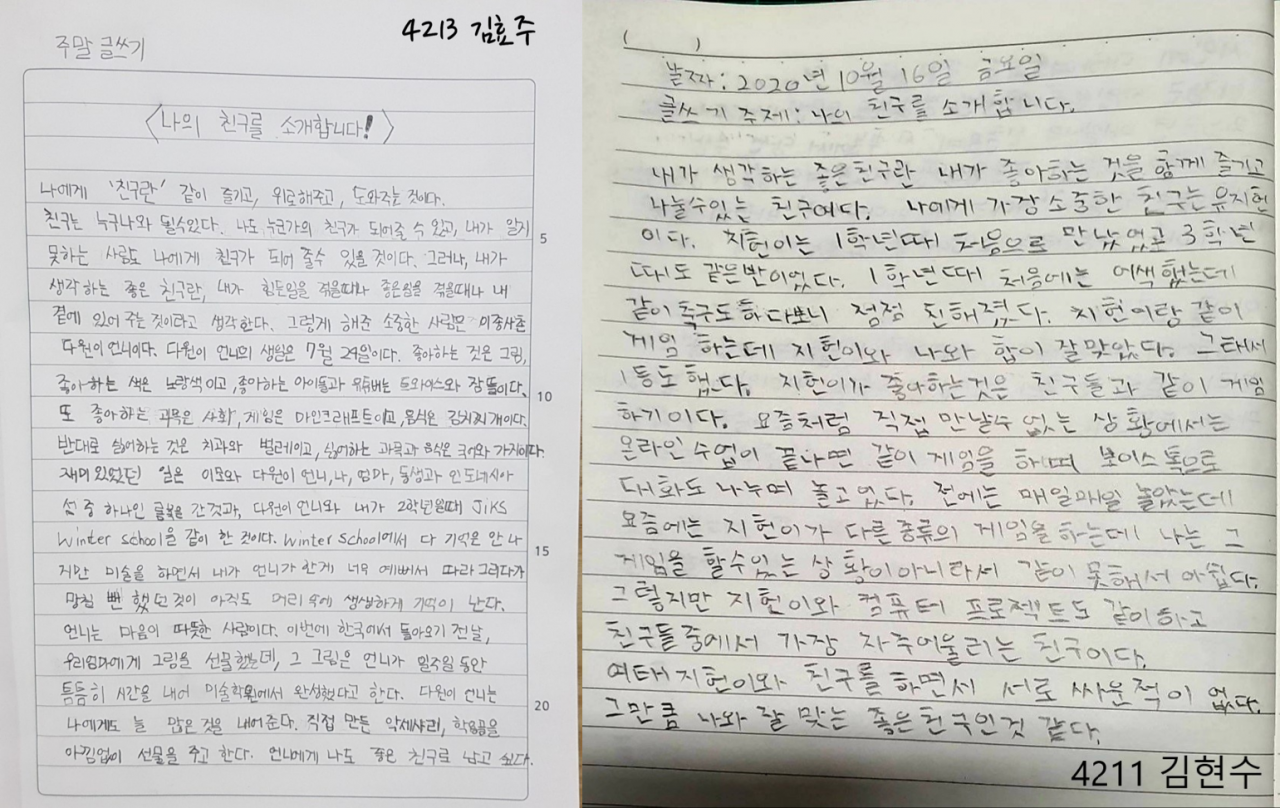 4213 김효주
주말 글쓰기
〈나의 친구를 소개합니다!〉
나에게 '친구란' 같이 즐기고, 위로해주고, 도와주는 것이다.
친구는 누구나와 될수있다. 나도 누군가의 친구가 되어줄 수 있고, 내가 알지
5
못하는 사람도 나에게 친구가 되어 줄수 있을 것이다. 그러나, 내가
생각하는 좋은 친구란, 내가 힘든일을 겪을때나 좋은일을 겪을때나 내
곁에 있어 주는 것이라고 생각한다. 그렇게 해준 소중한 사람은 이종사촌
다원이 언니이다. 다원이 언니의 생일은 7월 29일이다. 좋아하는 것은 그림,
좋아하는 색은 노랑색이고, 좋아하는 아이돌과 유튜버는 트와이스와 잠뜰이다.
10
또 좋아하는 과목은 사회, 게임은 마인크래프트이고, 음식은 김치찌개이다.
반대로 싫어하는 것은 치과와 벌레이고, 싫어하는 과목과 음식은 국어와 가지이다.
재미있었던 일은 이모와 다원이 언니, 나, 엄마, 동생과 인도네시아
섬 중 하나인 롬복을 간것과, 다원이 언니와 내가 2학년일때 JIKS
Winter school을 같이 한 것이다. Winter school에서 다 기억은 안 나
15
지만 미술을 하면서 내가 언니가 한게 너무 예뻐서 따라 그리다가
망칠 뻔 했던것이 아직도 머리 속에 생생하게 기억이 난다.
언니는 마음이 따뜻한 사람이다. 이번에 한국에서 돌아오기 전날,
우리엄마에게 그림을 선물했는데, 그 그림은 언니가 일주일 동안
틈틈히 시간을 내어 미술학원에서 완성했다고 한다. 다원이 언니는
20
나에게도 늘 많은 것을 내어준다. 직접 만든 악세사리, 학용품을
아낌없이 선물을 주고 한다. 언니에게 나도 좋은 친구로 남고 싶다.
( )
날짜: 2020년 10월 16일 금요일
글쓰기 주제: 나의 친구를 소개합니다.
내가 생각하는 좋은친구란 내가 좋아하는 것을 함께 즐기고
나눌수있는 친구이다. 나에게 가장 소중한 친구는 유지헌
이다. 지헌이는 1학년때 처음으로 만났었고 3학년
때도 같은반이었다. 1학년때 처음에는 어색했는데
같이 축구도 하다보니 점점 친해졌다. 지헌이랑 같이
게임 하는데 지헌이와 나와 합이 잘맞았다. 그래서
1등도 했다. 지헌이가 좋아하는것은 친구들과 같이 게임
하기이다. 요즘처럼 직접 만날수 없는 상황에서는
온라인 수업이 끝나면 같이 게임을 하며 보이스톡으로
대화도 나누며 놀고있다. 전에는 매일매일 놀았는데
요즘에는 지헌이가 다른종류의 게임을하는데 나는 그
게임을 할수있는 상황이아니라서 같이 못해서 아쉽다.
그렇지만 지헌이와 컴퓨터 프로젝트도 같이하고
친구들중에서 가장 자주어울리는 친구이다.
여태지헌이와 친구를 하면서 서로 싸운적이 없다.
그만큼 나와 잘 맞는 좋은친구인것 같다.
4211 김현수